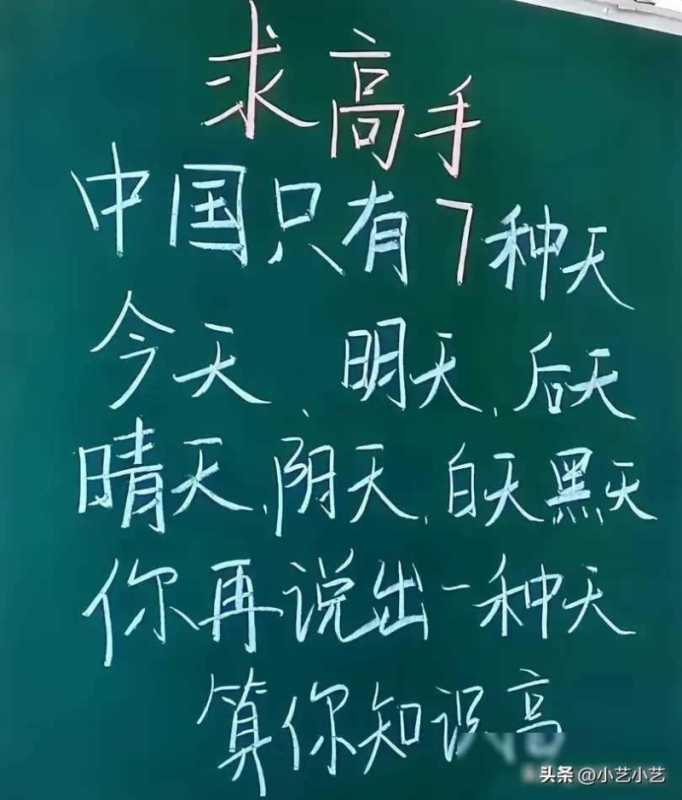 求高手
中国只有7种天
今天、明天、后天
晴天、阴天、白天黑天
你再说出一种天
算你知识高
头条 @小艺小艺